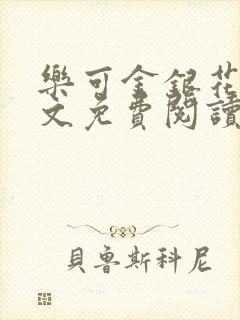 樂可金銀花
文免費閱讀
貝魯斯科尼